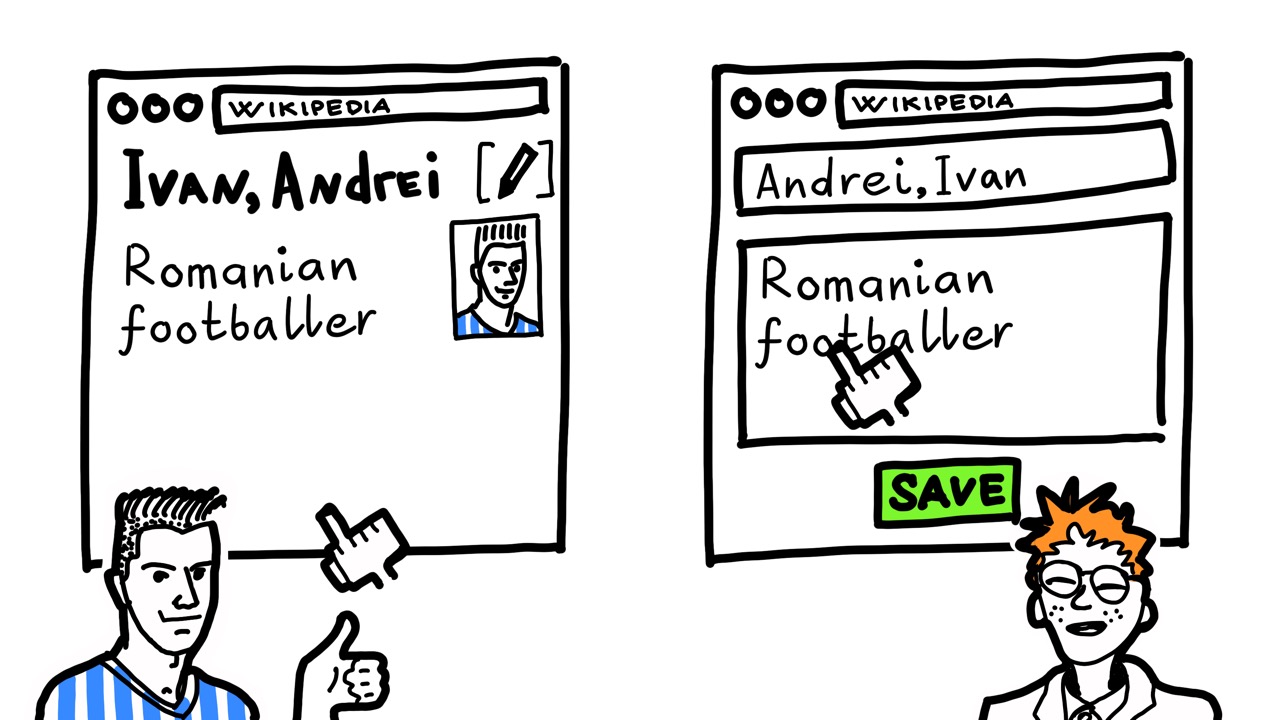 WIKIPEDIA
Ivan, Andrei
Romanian
footballer
WIKIPEDIA
Andrei, Ivan
Romanian
footballer
SAVE